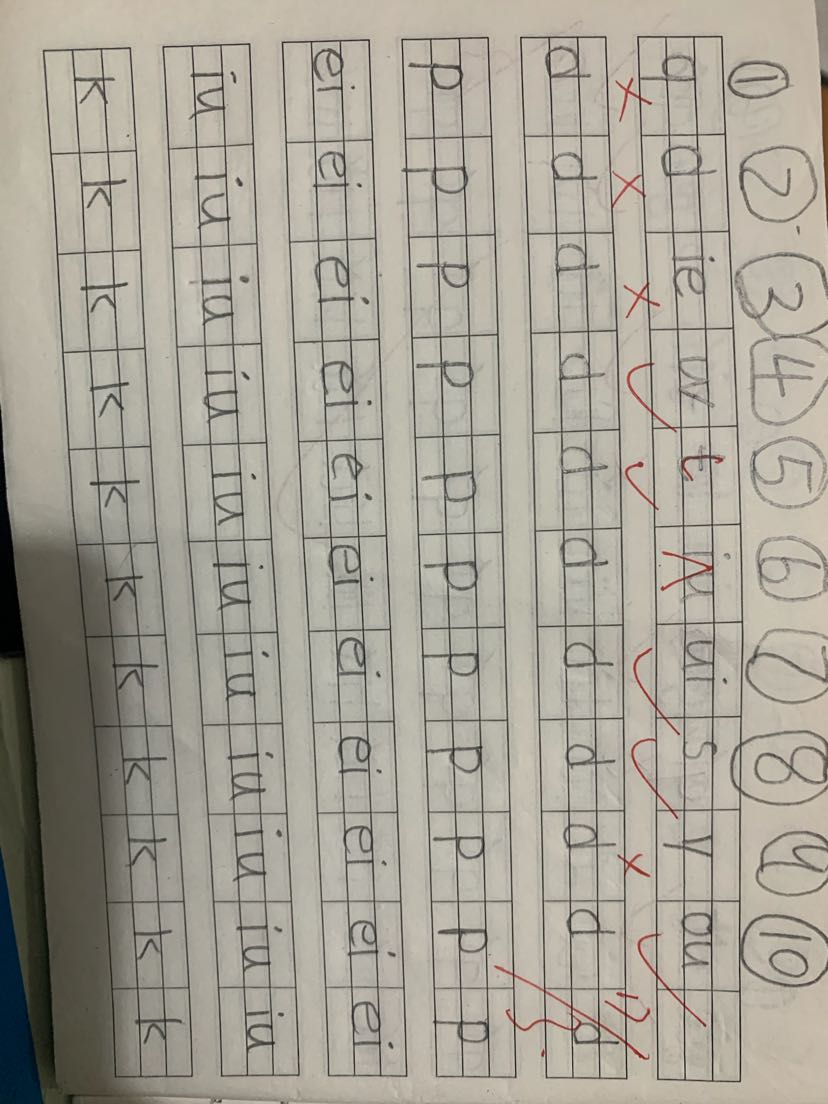 ① ② ③ ④ ⑤ ⑥ ⑦ ⑧ ⑨ ⑩
q d ie w t iu ui s y ou
d d d d d d d d d d d
p p p p p p p p p p p
ei ei ei ei ei ei ei ei ei ei ei
iu iu iu iu iu iu iu iu iu iu iu
k k k k k k k k k k k